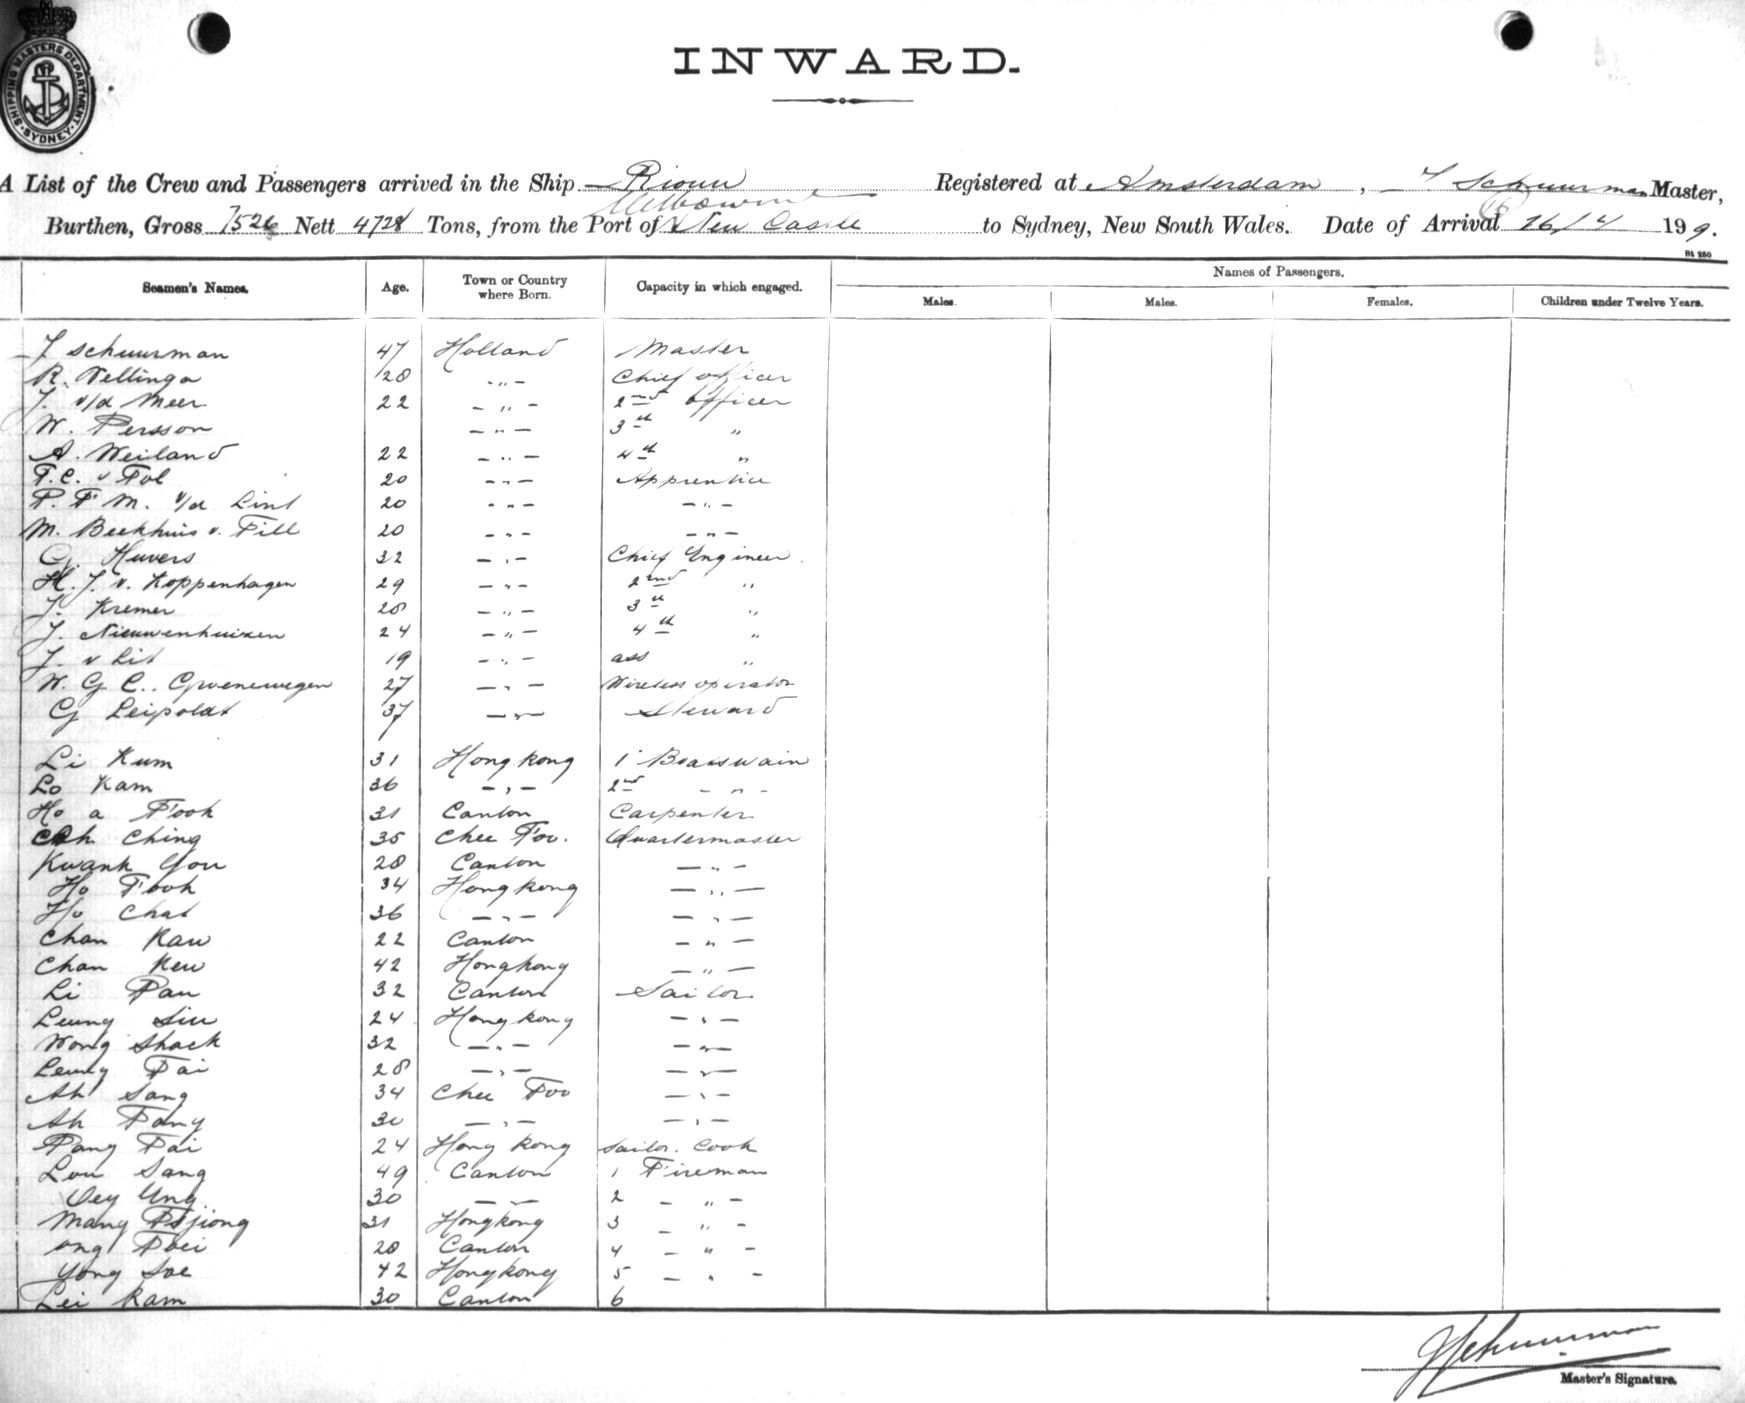 SHIPPING MASTERS DEPARTMENT SYDNEY
INWARD.
A List of the Crew and Passengers arrived in the Ship Riouw Registered at Amsterdam, J Schuurman Master,
Melbourne
Burthen, Gross 7526 Nett 4728 Tons, from the Port of New Castle to Sydney, New South Wales. Date of Arrival 16/4 19 9.
St 280
Names of Passengers.
Seamen's Names. Age. Town or Country where Born. Capacity in which engaged. Males. Males. Females. Children under Twelve Years.
J Schuurman 47 Holland Master
R. Vellinga 28 -"- Chief officer
J. v/d Meer 22 -"- 2nd officer
W. Persson -"- 3th "
A. Weiland 22 -"- 4th "
F.C. v Tol 20 -"- Apprentice
P. F M. v/d Lint 20 -"- -"-
M. Beekhuis v. Till 20 -"- -"-
G. Huvers 32 -"- Chief Engineer.
H. J. v. Koppenhagen 29 -"- 2nd "
J. Kremer 28 -"- 3th "
J. Nieuwenhuizen 24 -"- 4th "
J. v Lit 19 -"- ass "
W. G C. Groenewegen 27 -"- Wireless operator
G Leipoldt 37 -"- Steward
Li Kum 31 Hongkong 1 Boatswain
Lo Kam 36 -"- 2nd -"-
Ho a Fook 31 Canton Carpenter
Ching 35 Chee Foo. Quartermaster
Kwank You 28 Canton -"-
Ho Fook 34 Hongkong -"-
Ho Chat 36 -"- -"-
Chan Kaw 22 Canton -"-
Chan Kew 42 Hongkong -"-
Li Pau 32 Canton Sailor
Leung Siu 24 Hongkong -"-
Wong Shack 32 -"- -"-
Leung Tai 28 -"- -"-
Ah Sang 34 Chee Foo -"-
Ah Fong 30 -"- -"-
Pang Tai 24 Hong kong Sailor. Cook
Lou Sang 49 Canton 1 Fireman
Oey Ung 30 -"- 2 -"-
Mang Tsjiong 31 Hongkong 3 -"-
ong Poei 28 Canton 4 -"-
Yong Soe 42 Hongkong 5 -"-
Lei Kam 30 Canton 6
J Schuurman
Master's Signature.